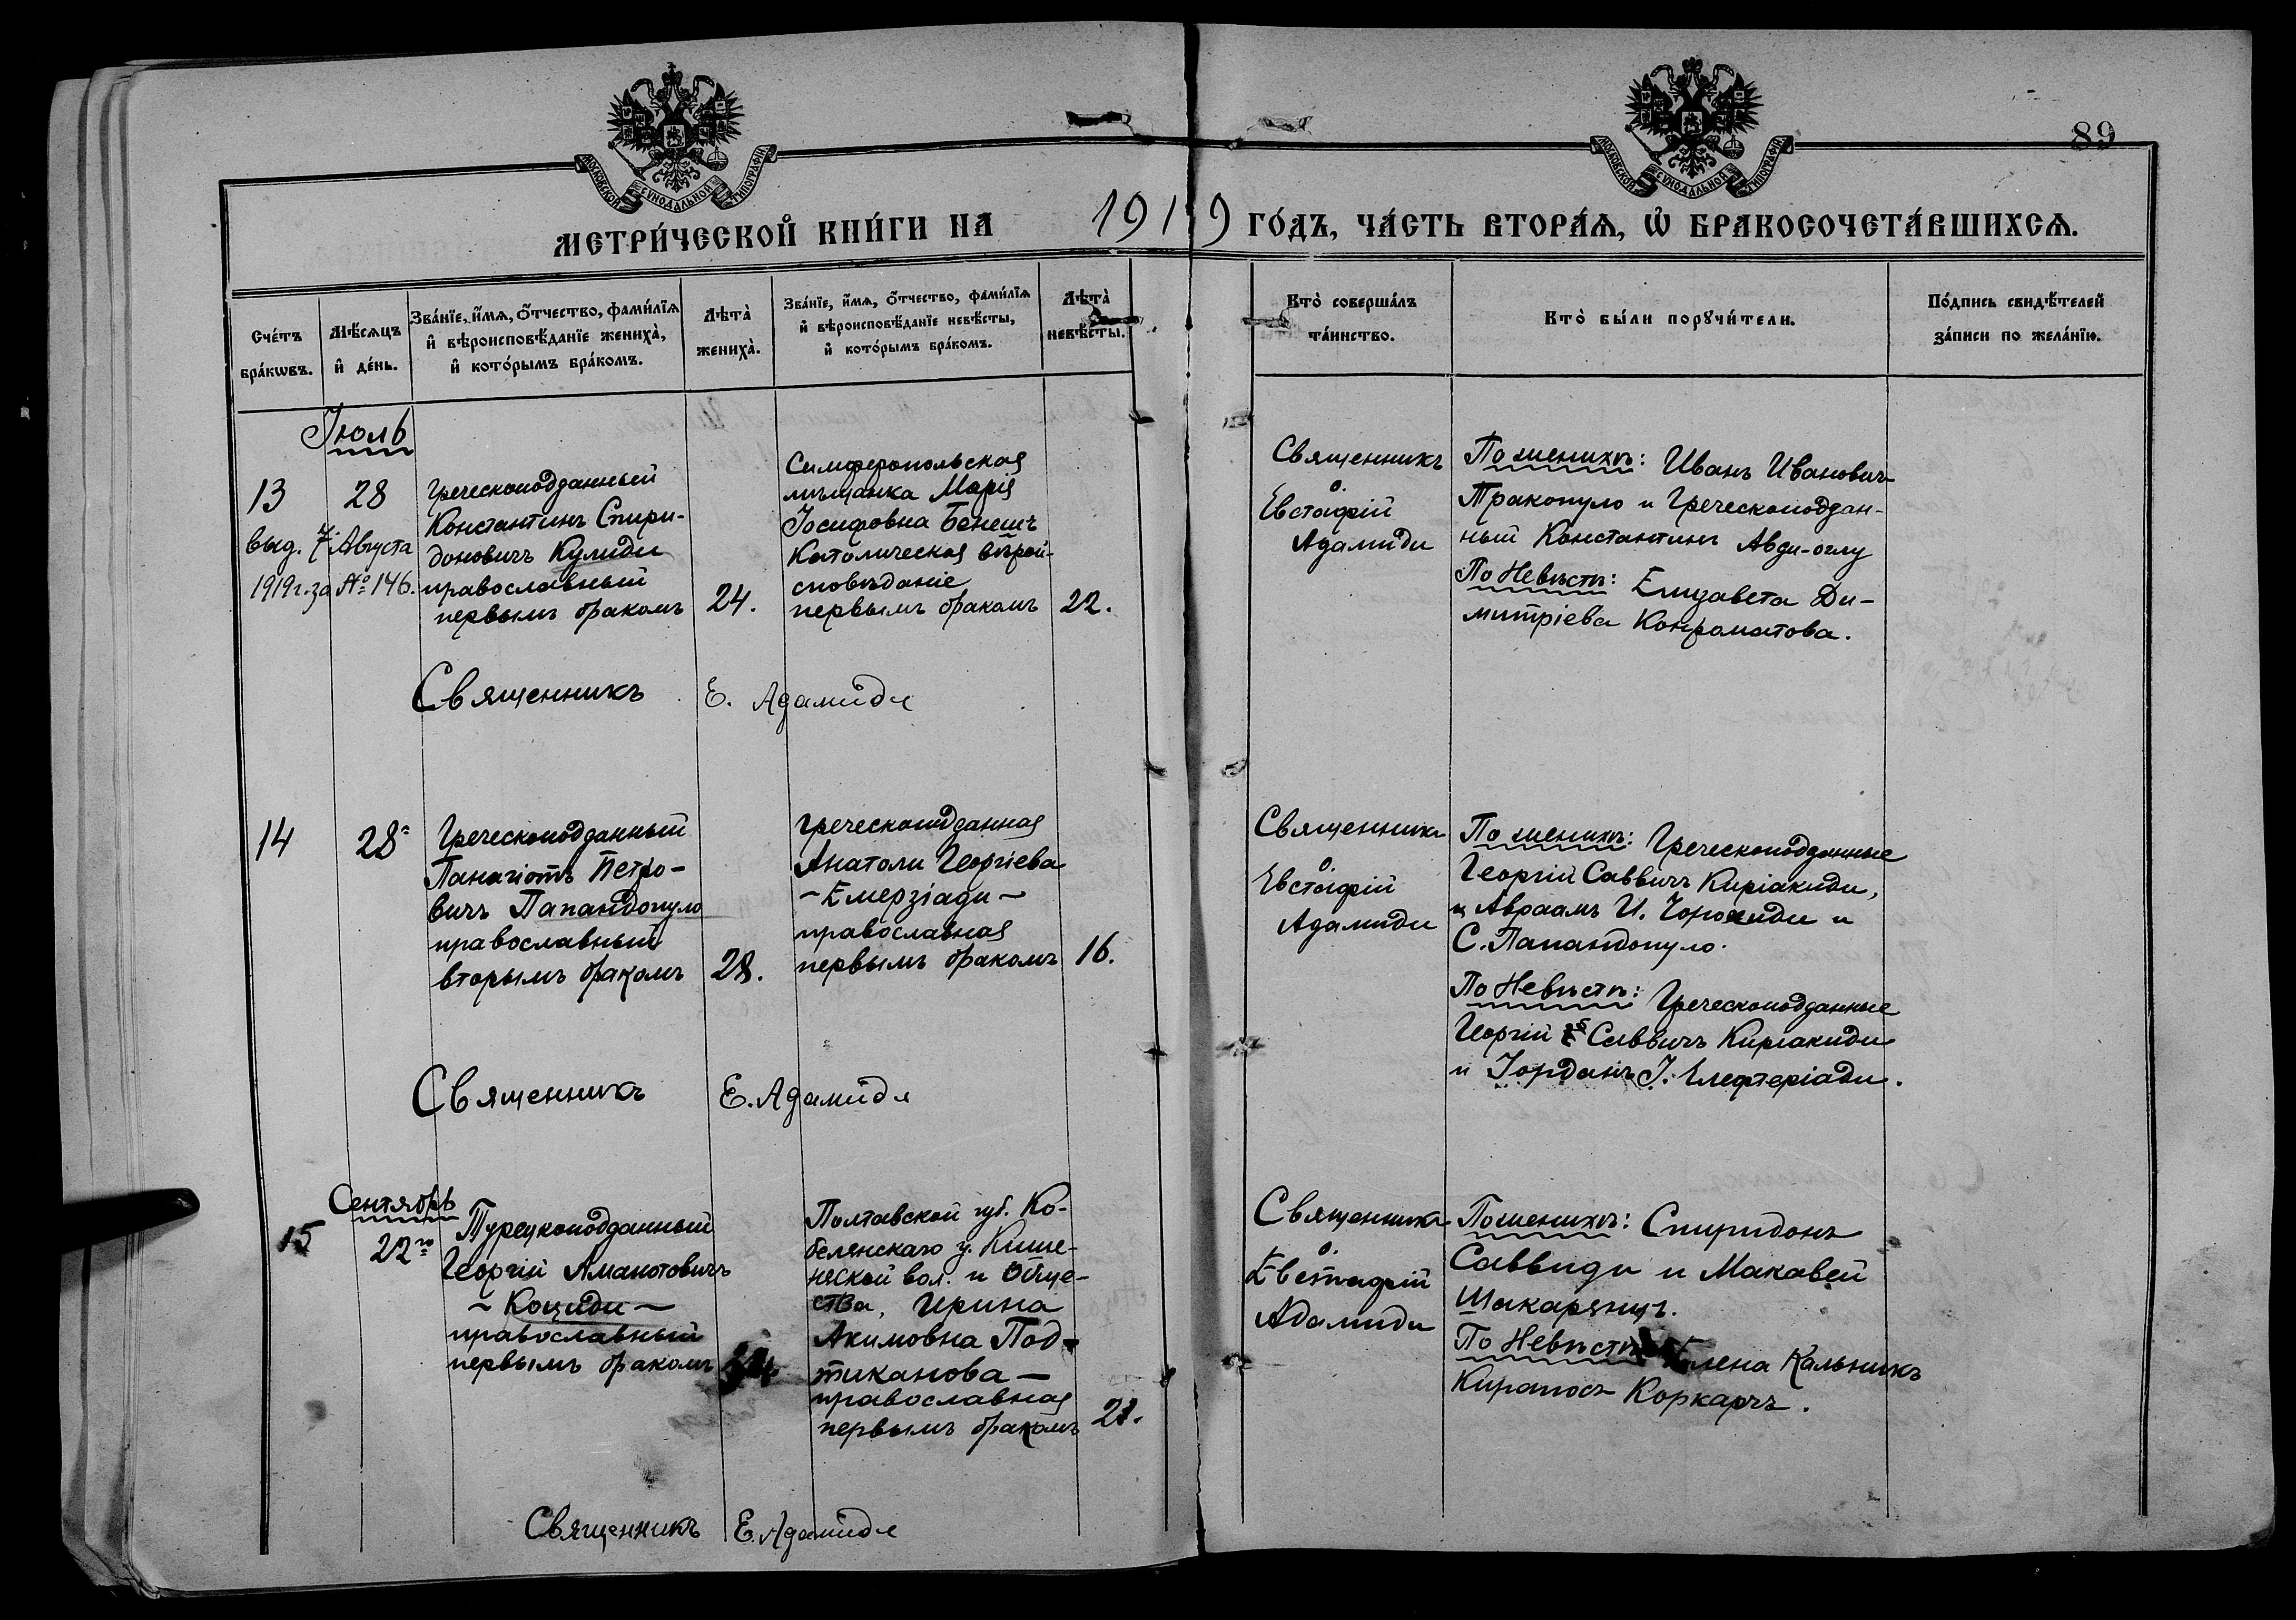 МОСКОВСКОЙ СУНОДАЛЬНОЙ ТИПОГРАФІИ
МОСКОВСКОЙ СУНОДАЛЬНОЙ ТИПОГРАФІИ
89
МЕТРИ́ЧЕСКОЙ КНИ́ГИ НА 1919 ГО́ДЪ, ЧА́СТЬ ВТОРА́Ѧ, Ѡ҆ БРАКОСОЧЕТА́ВШИХСѦ.
Сче́тъ
бра́кѡвъ.
Мѣ́сяцъ
и҆ де́нь.
Зва́нїе, и҆́мѧ, о҆́тчество, фами́лїѧ
и҆ вѣроисповѣ́данїе жениха̀,
и҆ кото́рымъ бра́комъ.
Лѣта̀
жениха̀.
Зва́нїе, и҆́мѧ, о҆́тчество, фами́лїѧ
и҆ вѣроисповѣ́данїе невѣ́сты,
и҆ кото́рымъ бра́комъ.
Лѣта̀
невѣ́сты.
Кто̀ соверша́лъ
та́инство.
Кто̀ бы́ли порꙋчи́тели.
По́дпись свидѣ́телей
за́писи по жела́нїю.
Іюль
13
28
выд. 7 Августа
1919 г. за № 146.
Греческоподданный
Константинъ Спири-
доновичъ Кулиди
православный
первымъ бракомъ
24.
Симферопольская
мѣщанка Марія
Іосифовна Бенешъ
Католическая вѣрои-
сповѣданіе
первымъ бракомъ
22.
Священникъ
о.
Евстафій
Адамиди
По женихѣ: Иванъ Ивановичъ
Тракопуло и Греческоподдан-
ный Константинъ Авди-оглу
По Невѣстѣ: Елизавета Ди-
митріева
Священникъ Е. Адамиди
14
28
Греческоподданный
Панагіотъ Петро-
вичъ Папандопуло
православный
вторымъ бракомъ
28.
Греческоподданная
Анатоли Георгіева
- Емерзіади -
православная
первымъ бракомъ
16.
Священникъ
о.
Евстафій
Адамиди
По женихѣ: Греческоподданные
Георгій Саввичъ Киріакиди,
и Авраамъ И. и
С. Папандопуло.
По Невѣстѣ: Греческоподданные
Георгій Саввичъ Киріакиди
и Іорданъ І. Елефтеріади.
Священникъ Е. Адамиди
Сентябрь
15
22го
Турецкоподданный
Георгій Аманотовичъ
- Коциди -
православный
первымъ бракомъ
Полтавской губ. Ко-
белянскаго у. Кише-
нской вол. и Обще-
ства, Ирина
Акимовна Под-
тиканова -
православная
первымъ бракомъ
21.
Священникъ
о.
Евстафій
Адамиди
По женихѣ: Спиридонъ
Саввиди и Макавей
Шакарянцъ.
По Невѣстѣ: Елена Кальникъ
Киракосъ Коркарчъ.
Священникъ Е. Адамиди